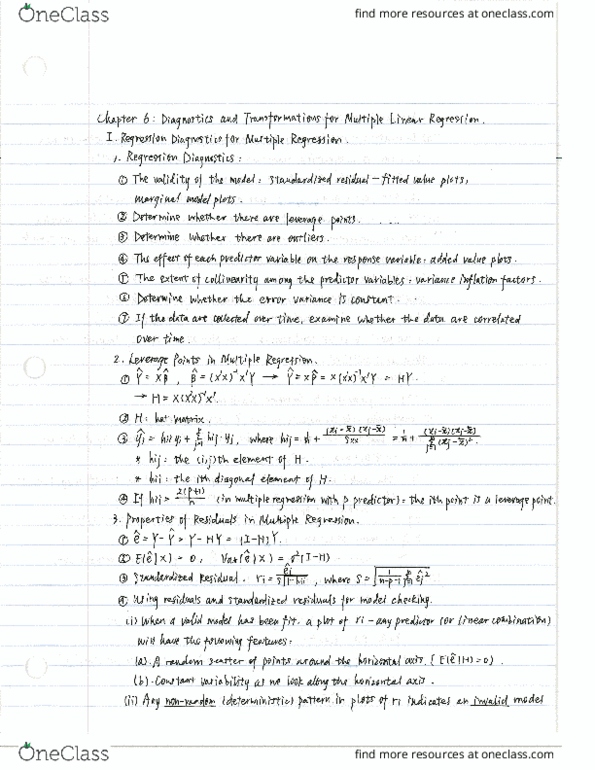 OneClass
find more resources at oneclass.com
Chapter 6: Diagnostics and Transformations for Multiple Linear Regression.
I. Regression Diagnostics for Multiple Regression.
1. Regression Diagnostics:
① The validity of the model: standardized residual - fitted value plots,
marginal model plots.
② Determine whether there are leverage points.
③ Determine whether there are outliers.
④ The effect of each predictor variable on the response variable: added value plots.
⑤ The extent of collinearity among the predictor variables: variance inflation factors.
⑥ Determine whether the error variance is constant.
⑦ If the data are collected over time, examine whether the data are correlated
over time.
2. Leverage Points in Multiple Regression.
① Ŷ = Xβ̂, β̂ = (X'X)⁻¹X'Y → Ŷ = Xβ̂ = X(X'X)⁻¹X'Y = HY
→ H = X(X'X)⁻¹X'.
② H: hat matrix.
③ ŷi = hii yi + Σ hij yj, where hij = 1/n + (xi-x̄)(xj-x̄)/Sxx = 1/n + (xi-x̄)(xj-x̄)/Σ(xj-x̄)².
* hij: the (i,j)th element of H.
* hii: the ith diagonal element of H.
④ If hii > 2(p+1)/n (in multiple regression with p predictor): the ith point is a leverage point.
3. Properties of Residuals in Multiple Regression.
① ê = Y - Ŷ = Y - HY = (I-H)Y
② E(ê|X) = 0, Var(ê|X) = σ²(I-H)
③ Standardized Residual. ri = êi/(S√(1-hii)), where S = √(1/(n-p-1) Σ êj²)
④ Using residuals and standardized residuals for model checking.
(i) When a valid model has been fit. a plot of ri - any predictor (or linear combination)
will have the following features:
(a). A random scatter of points around the horizontal axis. { E(ê|H) = 0 }.
(b). Constant variability as we look along the horizontal axis.
(ii) Any non-random (deterministic) pattern in plots of ri indicates an invalid model
OneClass
find more resources at oneclass.com